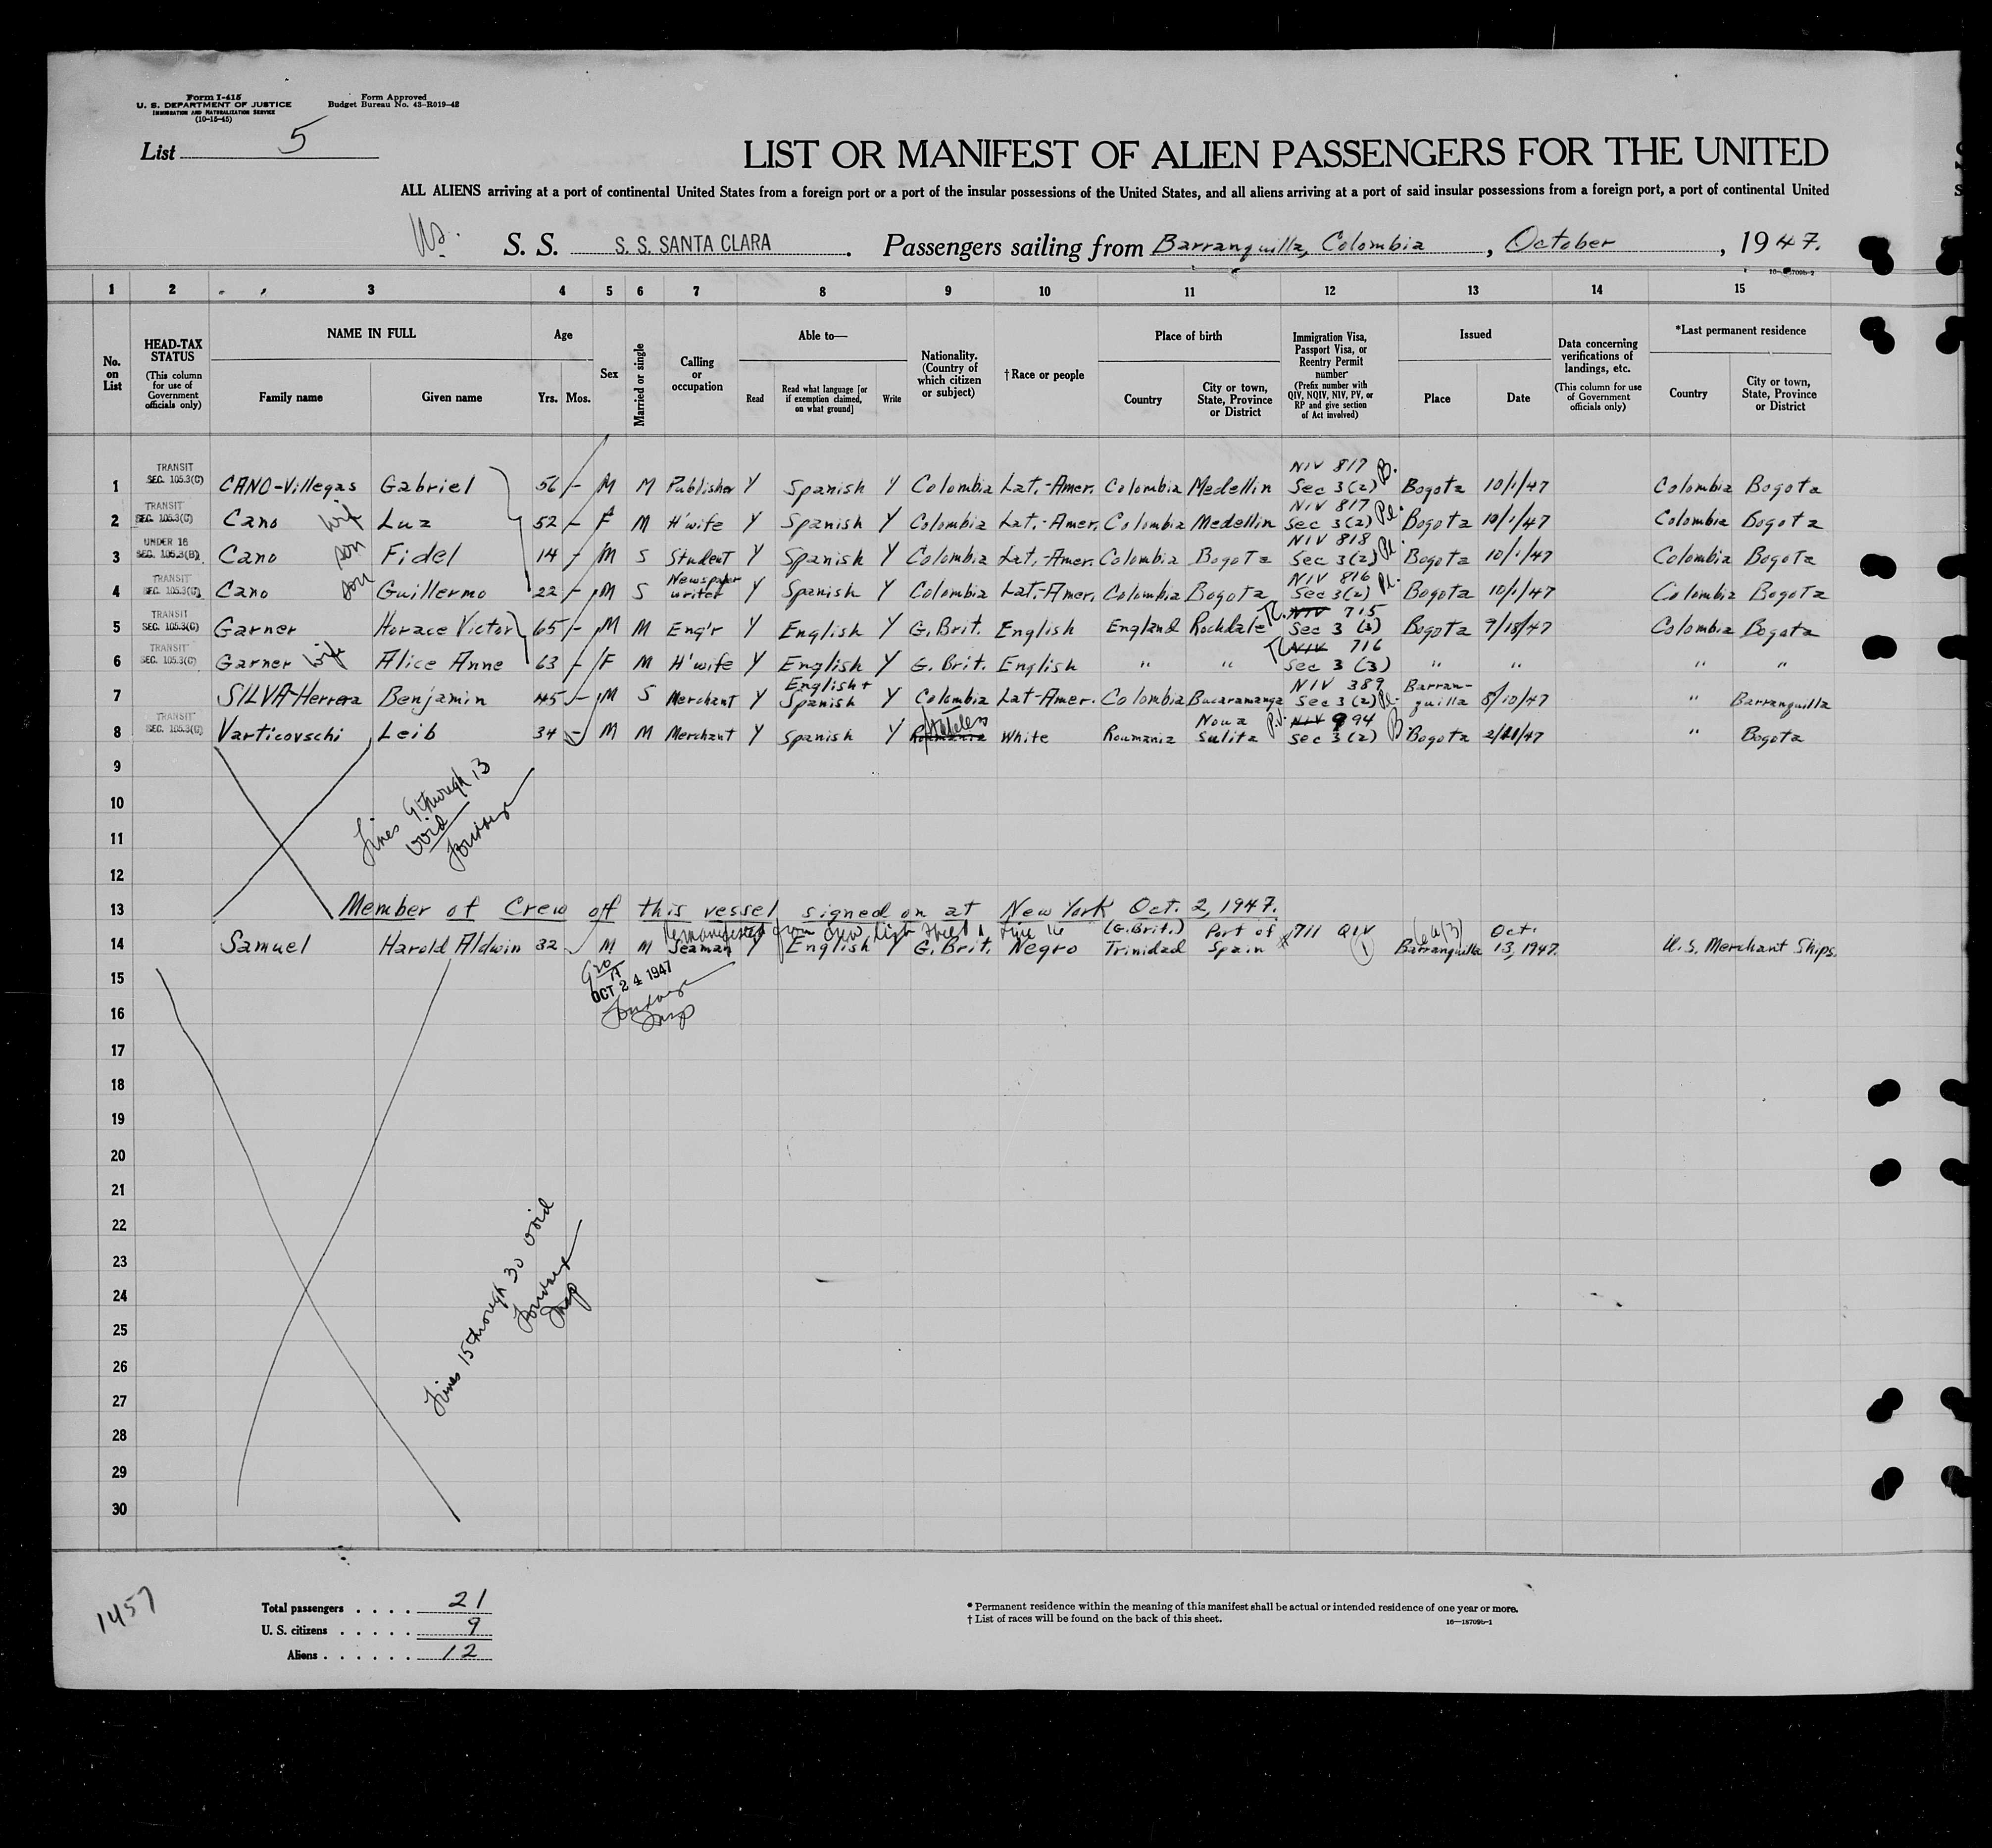 Form I-415
U. S. DEPARTMENT OF JUSTICE
IMMIGRATION AND NATURALIZATION SERVICE
(10-15-45)
Form Approved
Budget Bureau No. 43-R019-42
List 5
LIST OR MANIFEST OF ALIEN PASSENGERS FOR THE UNITED
ALL ALIENS arriving at a port of continental United States from a foreign port or a port of the insular possessions of the United States, and all aliens arriving at a port of said insular possessions from a foreign port, a port of continental United
S. S. S. S. SANTA CLARA. Passengers sailing from Barranquilla, Colombia, October, 1947.
1 2 3 4 5 6 7 8 9 10 11 12 13 14 15
No. on List
HEAD-TAX STATUS (This column for use of Government officials only)
NAME IN FULL
Family name Given name
Age
Yrs. Mos.
Sex
Married or single
Calling or occupation
Able to—
Read Read what language [or if exemption claimed, on what ground] Write
Nationality. (Country of which citizen or subject)
†Race or people
Place of birth
Country City or town, State, Province or District
Immigration Visa, Passport Visa, or Reentry Permit number (Prefix number with QIV, NQIV, NIV, PV, or RP and give section of Act involved)
Issued
Place Date
Data concerning verifications of landings, etc. (This column for use of Government officials only)
*Last permanent residence
Country City or town, State, Province or District
1 TRANSIT SEC. 105.3(C) CANO-Villegas Gabriel 56 - M M Publisher Y Spanish Y Colombia Lat.-Amer. Colombia Medellin NIV 817 Sec 3(2) B. Bogota 10/1/47 Colombia Bogota
2 TRANSIT SEC. 105.3(C) Cano wife Luz 52 - F M H'wife Y Spanish Y Colombia Lat.-Amer. Colombia Medellin NIV 817 Sec 3(2) Pl. Bogota 10/1/47 Colombia Bogota
3 UNDER 16 SEC. 105.3(B) Cano son Fidel 14 - M S Student Y Spanish Y Colombia Lat.-Amer. Colombia Bogota NIV 818 Sec 3(2) Pl. Bogota 10/1/47 Colombia Bogota
4 TRANSIT SEC. 105.3(C) Cano son Guillermo 22 - M S Newspaper writer Y Spanish Y Colombia Lat.-Amer. Colombia Bogota NIV 816 Sec 3(2) Pl. Bogota 10/1/47 Colombia Bogota
5 TRANSIT SEC. 105.3(C) Garner Horace Victor 65 - M M Eng'r Y English Y G. Brit. English England Rochdale NIV 715 Sec 3 (3) Bogota 9/18/47 Colombia Bogota
6 TRANSIT SEC. 105.3(C) Garner wife Alice Anne 63 - F M H'wife Y English Y G. Brit. English " " NIV 716 Sec 3 (3) " " " "
7 SILVA-Herrera Benjamin 45 - M S Merchant Y English + Spanish Y Colombia Lat-Amer. Colombia Bucaramanga NIV 389 Sec 3(2) Pl. Barranquilla 8/10/47 " Barranquilla
8 TRANSIT SEC. 105.3(C) Varticovschi Leib 34 - M M Merchant Y Spanish Y Roumania Stateless White Roumania Noua Sulita P.V. NIV 994 Sec 3(2) B Bogota " Bogota
9
10
11
12
Lines 9 through 13 void
13 Member of Crew off this vessel signed on at New York Oct. 2, 1947.
Remanifested from Crew List Sheet 1 Line 16
14 Samuel Harold Aldwin 32 M M Seaman Y English Y G. Brit. Negro (G. Brit.) Trinidad Port of Spain 1711 QIV Barranquilla Oct. 13, 1947. U.S. Merchant Ships.
15
OCT 24 1947
Insp
16
17
18
19
20
21
22
23
24
25
26
27
28
29
30
Lines 15 through 30 void
Insp
1457
Total passengers . . . . 21
U. S. citizens . . . . . 9
Aliens . . . . . . 12
* Permanent residence within the meaning of this manifest shall be actual or intended residence of one year or more.
† List of races will be found on the back of this sheet.
16—18709b-1